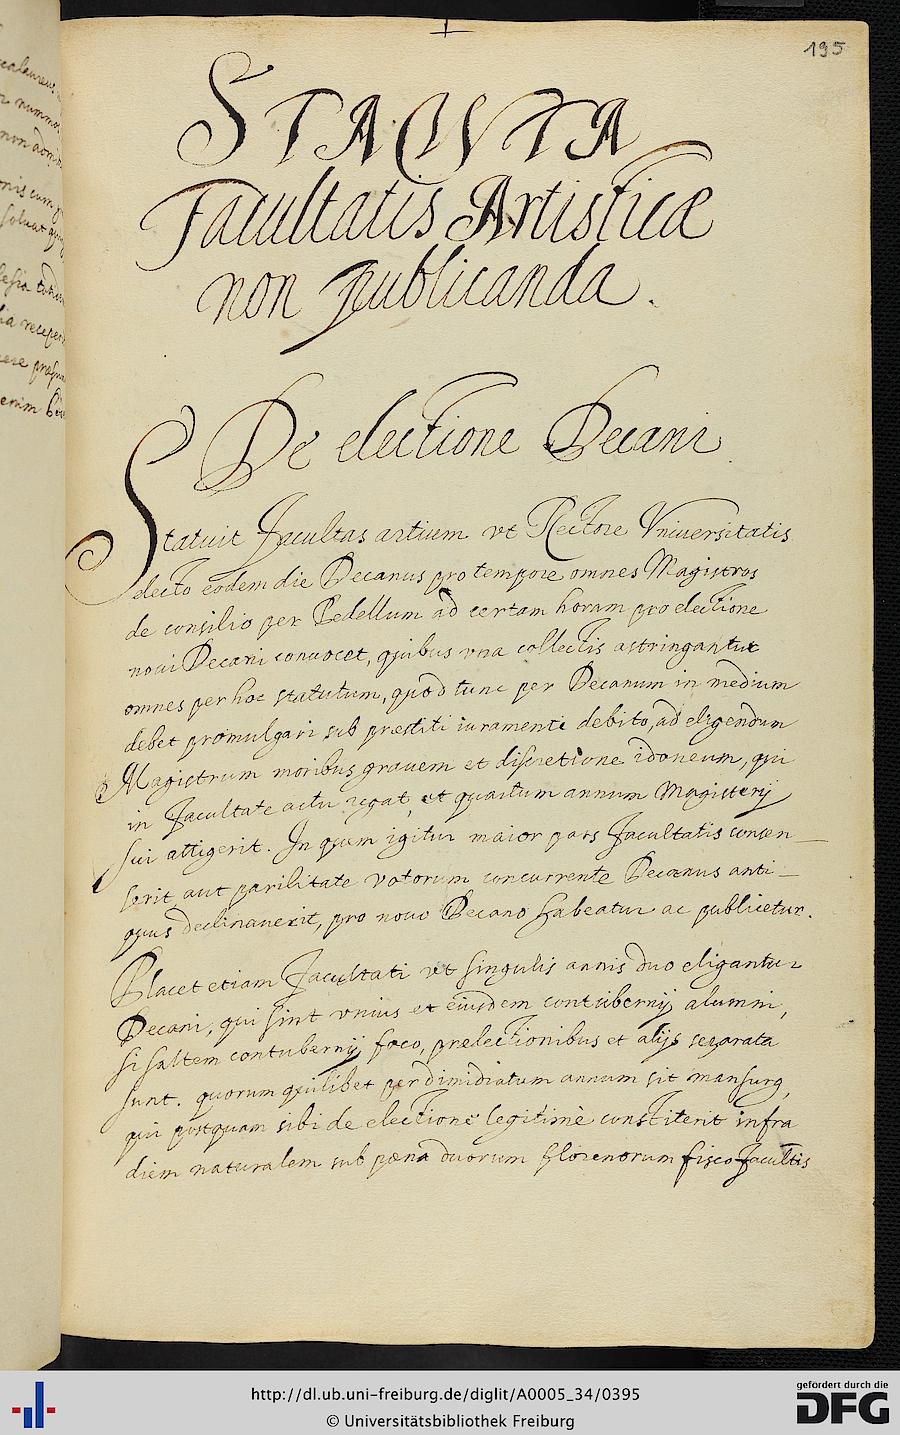 195
STATVTA
Facultatis Artisticæ
non publicanda.
De electione Decani
Statuit Facultas artium vt Rectore Vniuersitatis
electo eodem die Decanus pro tempore omnes Magistros
de consilio per Pedellum ad certam horam pro electione
noui Decani conuocet, quibus vna collectis astringantur
omnes per hoc statutum, quod tunc per Decanum in medium
debet promulgari sub præstiti iuramenti debito, ad eligendum
Magistrum moribus grauem et discretione idoneum, qui
in Facultate actu regat, et quartum annum Magisterij
sui attigerit. In quem igitur maior pars Facultatis consen-
serit, aut parilitate votorum concurrente Decanus anti-
quus declinauerit, pro nouo Decano habeatur ac publicetur.
Placet etiam Facultati vt singulis annis duo eligantur
Decani, qui sint vnius et eiusdem contubernij alumni,
si saltem contubernij foco, prælectionibus et alijs separata
sunt. quorum quilibet per dimidiatum annum sit mansurq,
qui postquam sibi de electione legitimè constiterit infra
diem naturalem sub pæna duorum florenorum fisco Facultis
calaureus
nummos
non
onis cum
soluat
lesia
ia recepe
erim
http://dl.ub.uni-freiburg.de/diglit/A0005_34/0395
© Universitätsbibliothek Freiburg
gefördert durch die
DFG